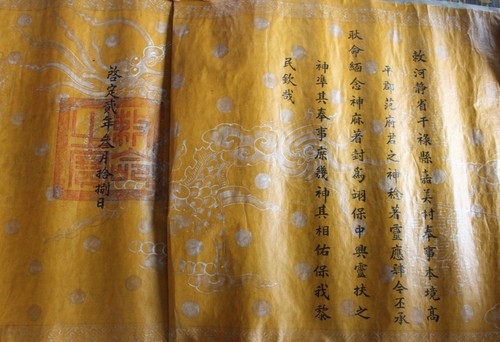 敕河靜省干祿縣嘉吳村奉事本境高
平郡范府君之神稔著靈應肆今丕承
耿命緬念神庥著封爲翊保中興靈扶之
神準其奉事庶幾神其相佑保我黎
民欽哉
啓定貳年叁月拾捌日